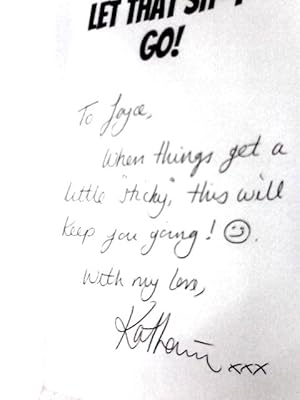 LET THAT SH*T
GO!
To Joyce,
When things get a
little "sticky", this will
keep you going! ☺.
With my love,
Katharine xxx